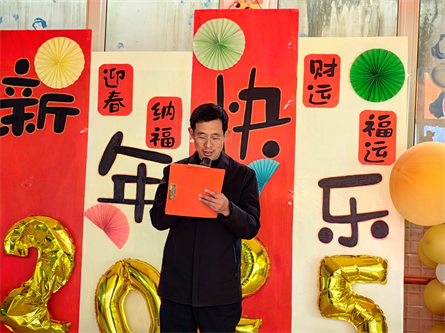 新年快乐
迎春
纳福
财运
福运
2025